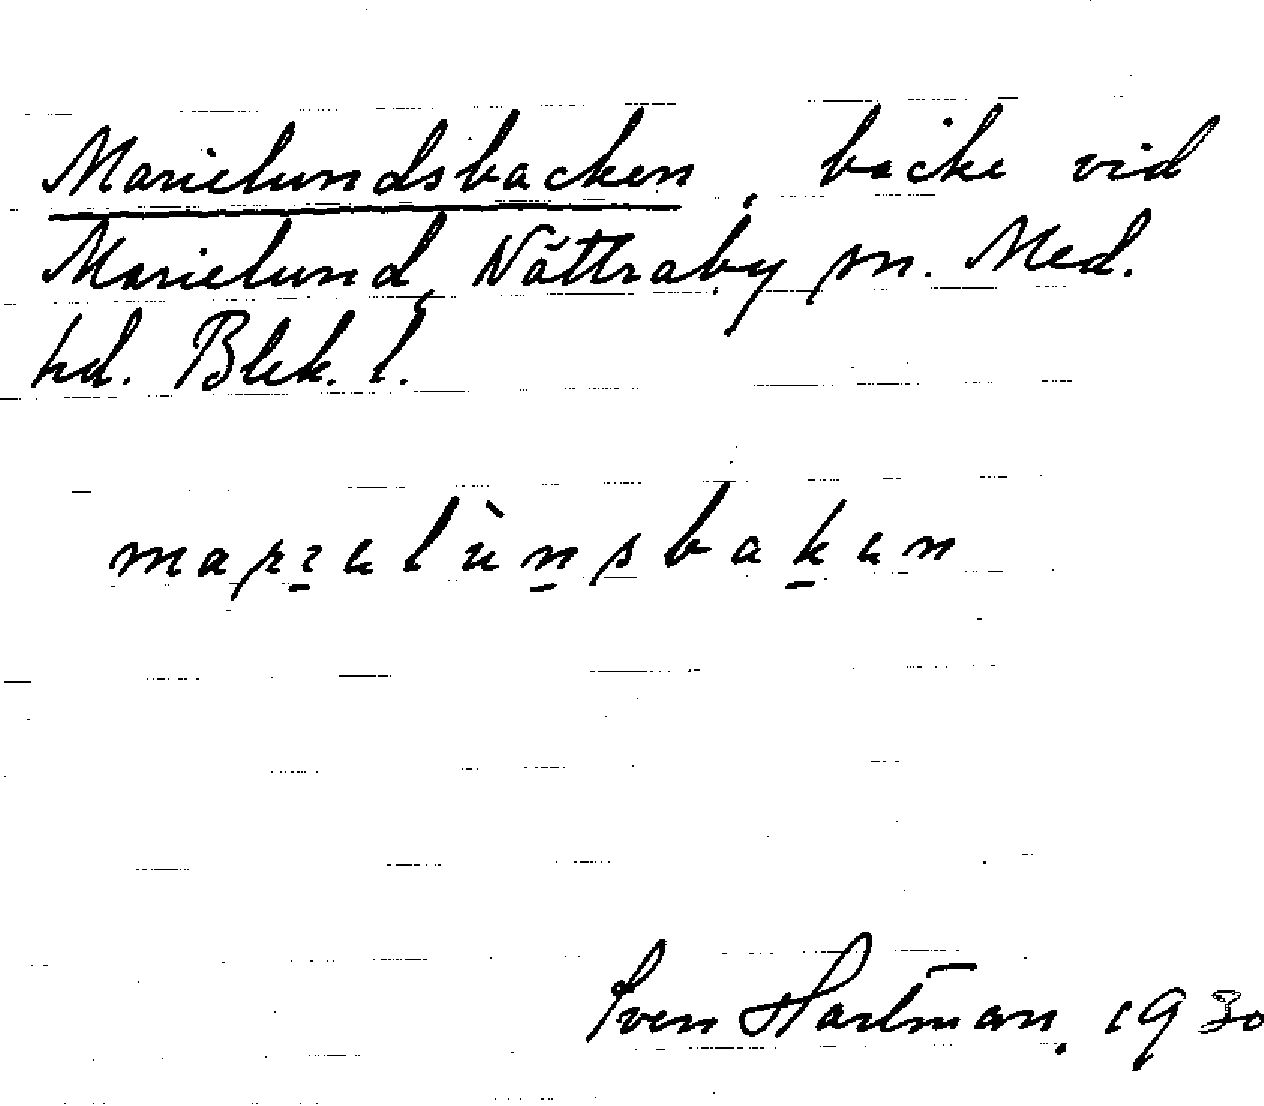 Marielundsbacken, backe vid
Marielund, Nättraby sn. Med.
hd. Blek. l.
Sven Hartman, 1930